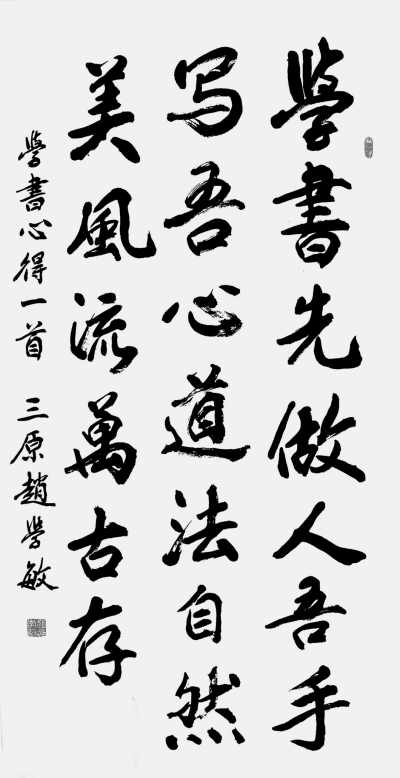 學書先做人吾手
写吾心道法自然
美風流萬古存
學書心得一首 三原趙學敏